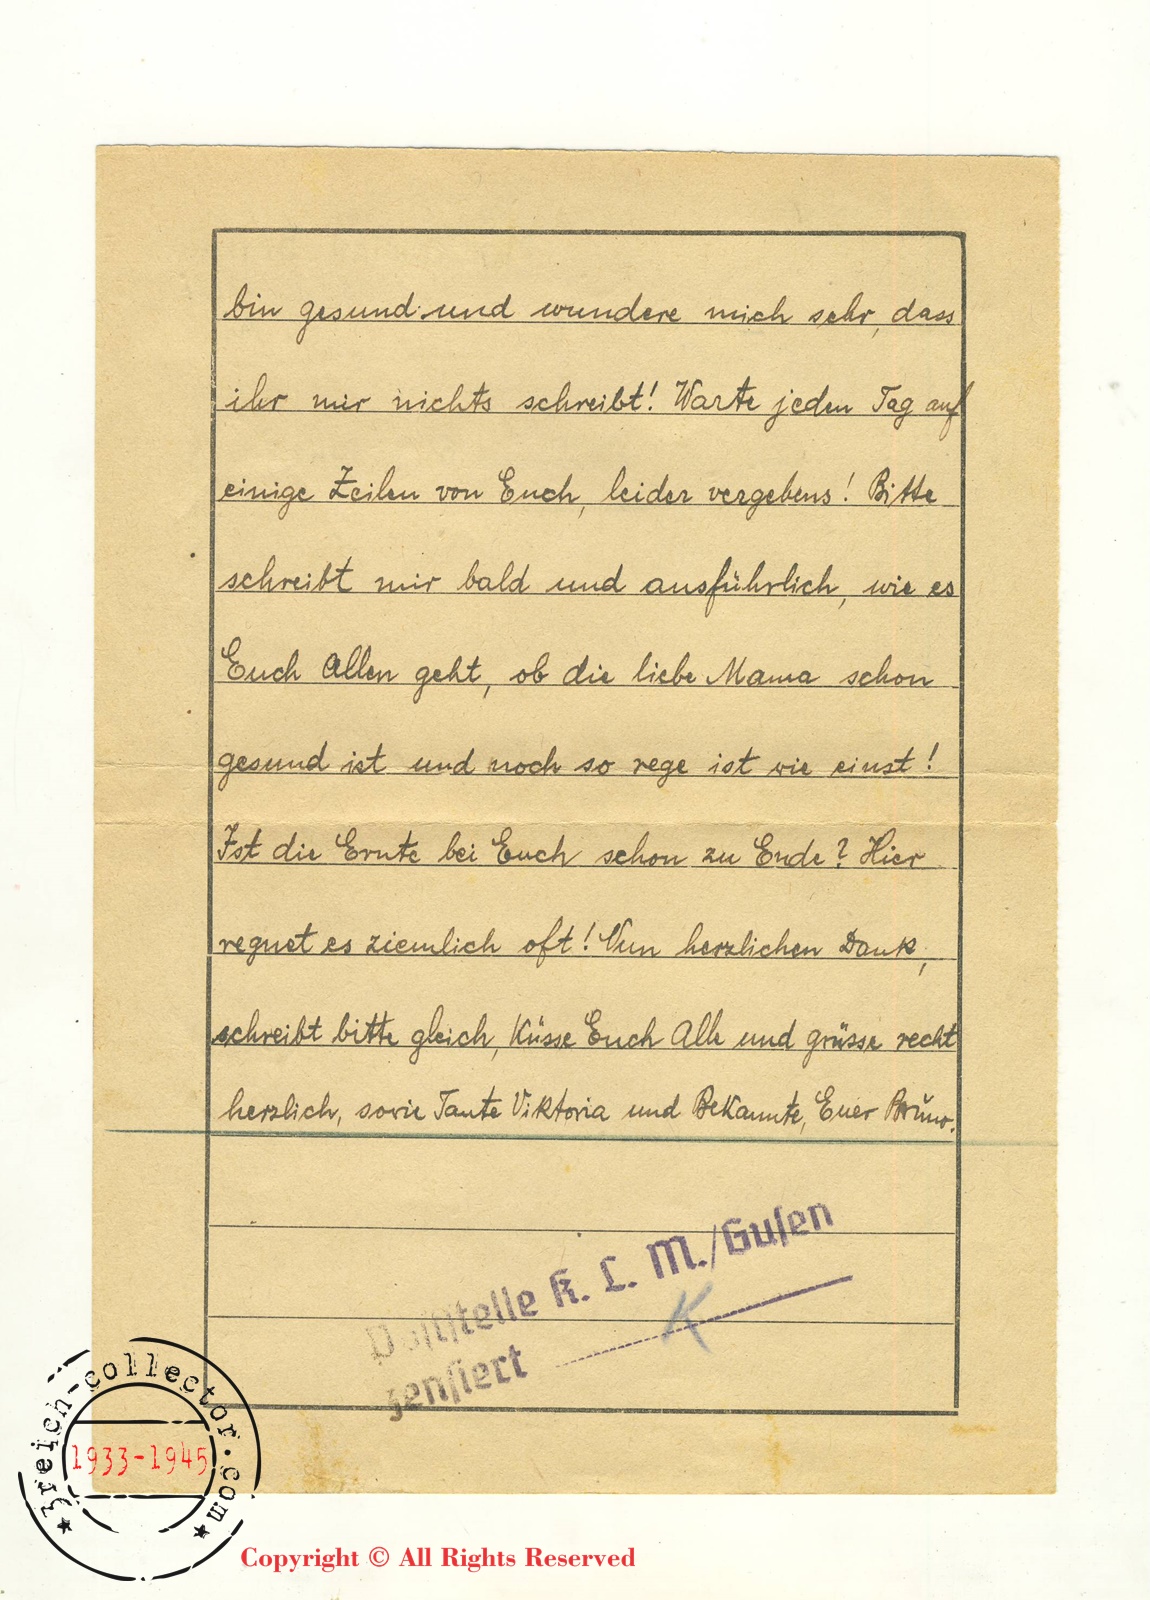 bin gesund und wundere mich sehr, dass
ihr mir nichts schreibt! Warte jeden Tag auf
einige Zeilen von Euch, leider vergebens! Bitte
schreibt mir bald und ausführlich, wie es
Euch Allen geht, ob die liebe Mama schon
gesund ist und noch so rege ist wie einst!
Ist die Ernte bei Euch schon zu Ende? Hier
regnet es ziemlich oft! Nun herzlichen Dank,
schreibt bitte gleich, Küsse Euch Alle und grüsse recht
herzlich, sowie Tante Viktoria und Bekannte, Euer Bruno.
Poststelle K. L. M./Gusen
zensiert
K
3reich-collector.com
1933-1945
Copyright © All Rights Reserved